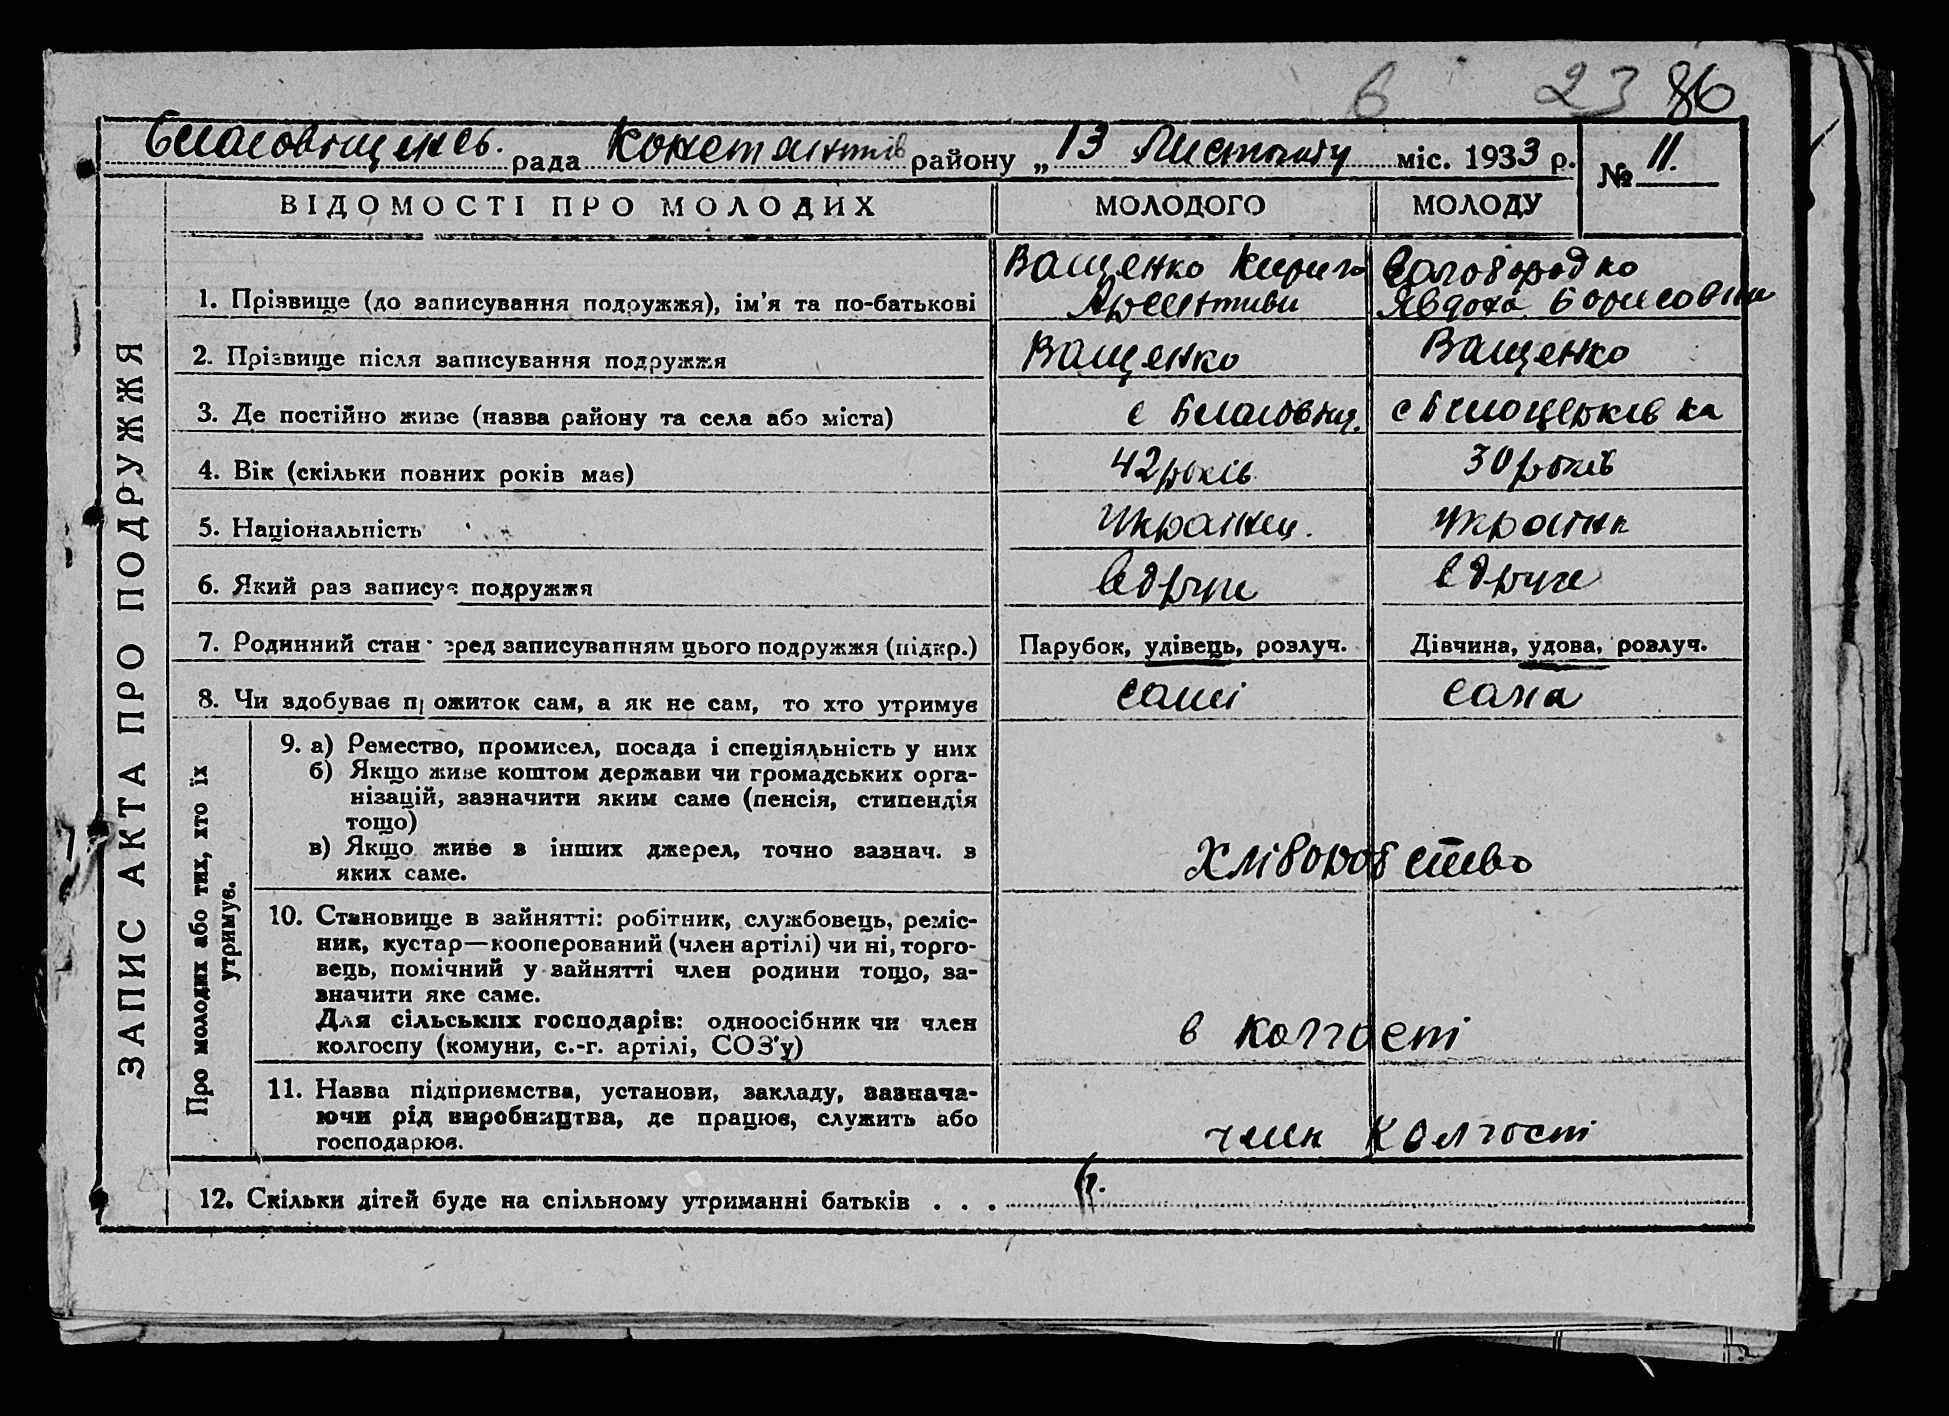 в 23 86
Благовіщенсь. рада Константинів району „13 Листопаду міс. 1933 р. № 11.
ВІДОМОСТІ ПРО МОЛОДИХ МОЛОДОГО МОЛОДУ
ЗАПИС АКТА ПРО ПОДРУЖЖЯ
Ващенко Кирило
1. Прізвище (до записування подружжя), ім'я та по-батькові Явдоха Борисовна
2. Прізвище після записування подружжя Ващенко Ващенко
3. Де постійно живе (назва району та села або міста) с Благовіщ. с Білоцерківка
4. Вік (скільки повних років має) 42 років 30 років
5. Національність Україн
6. Який раз записує подружжя вдруге вдруге
7. Родинний стан перед записуванням цього подружжя (підкр.) Парубок, удівець, розлуч. Дівчина, удова, розлуч.
8. Чи здобуває прожиток сам, а як не сам, то хто утримує сама
Про молодих або тих, хто їх
утримує.
9. а) Ремество, промисел, посада і спеціяльність у них
б) Якщо живе коштом держави чи громадських орга-
нізацій, зазначити яким саме (пенсія, стипендія
тощо)
в) Якщо живе в інших джерел, точно зазнач. з
яких саме.
Хліборобство
10. Становище в зайнятті: робітник, службовець, реміс-
ник, кустар—кооперований (член артілі) чи ні, торго-
вець, помічний у зайнятті член родини тощо, за-
значити яке саме.
Для сільських господарів: одноосібник чи член
колгоспу (комуни, с.-г. артілі, СОЗ'у)
в колгості
11. Назва підприємства, установи, закладу, зазнача-
ючи рід виробництва, де працює, служить або
господарює.
член колгості
12. Скільки дітей буде на спільному утриманні батьків . . .